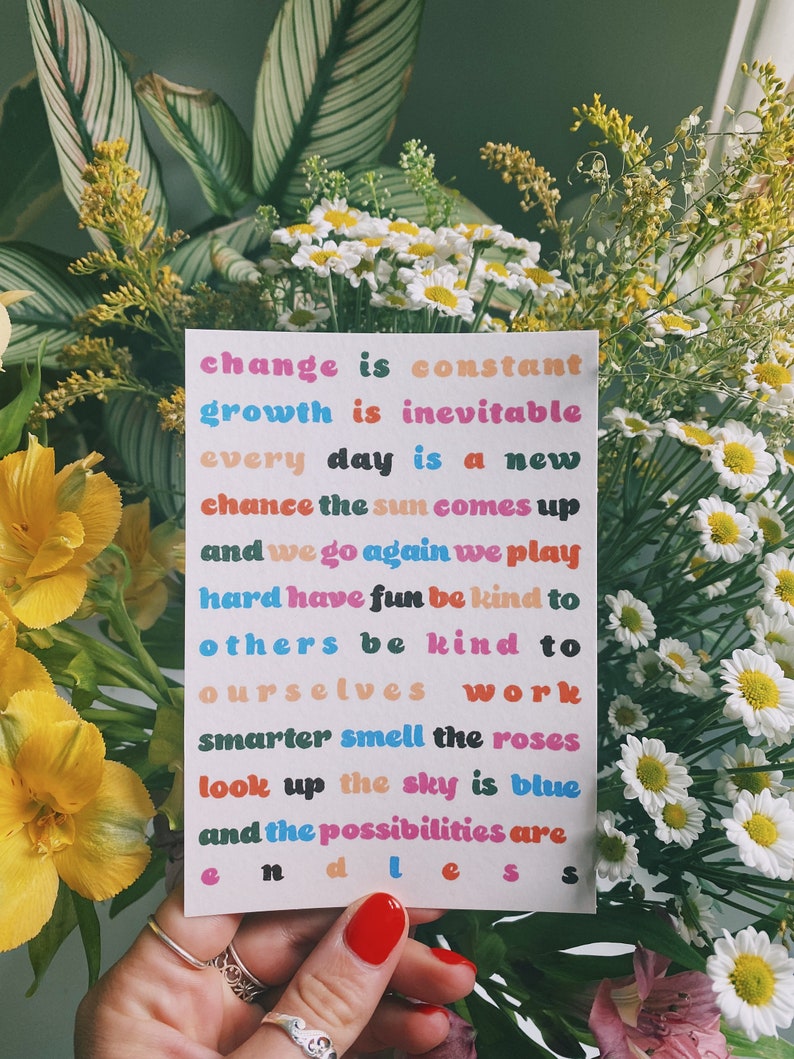 change is constant
growth is inevitable
every day is a new
chance the sun comes up
and we go again we play
hard have fun be kind to
others be kind to
ourselves work
smarter smell the roses
look up the sky is blue
and the possibilities are
endless